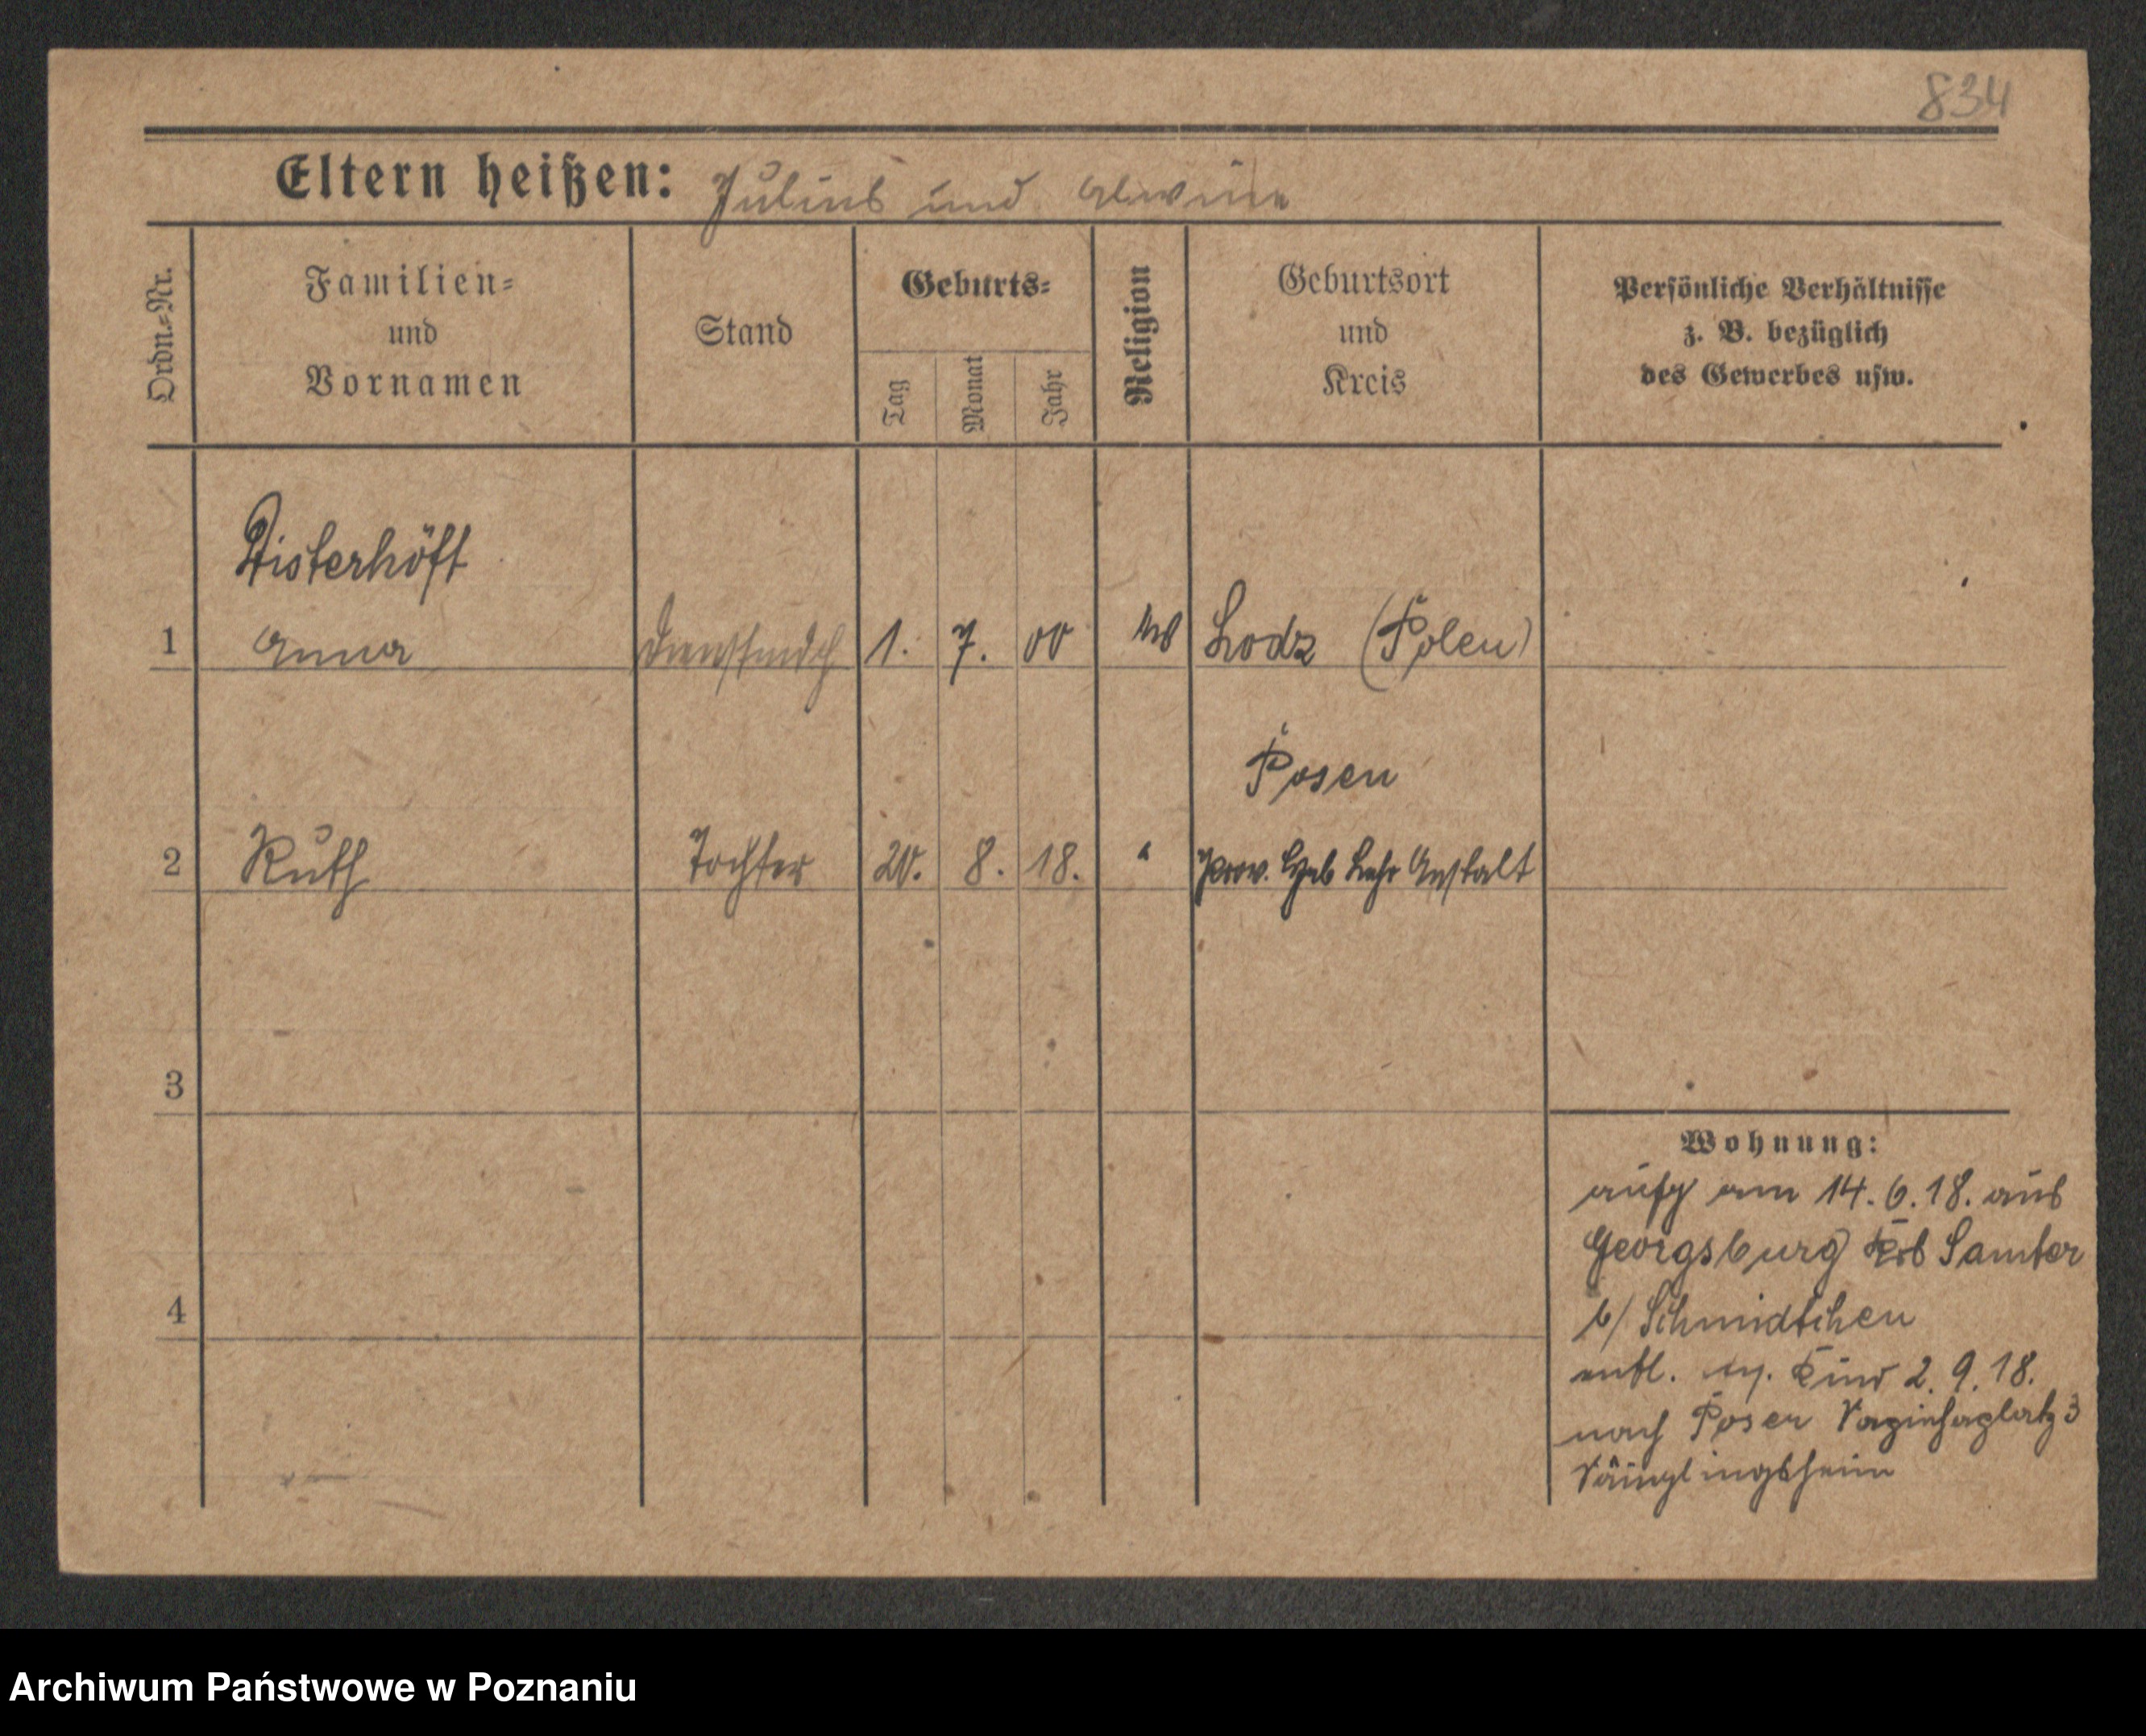 834
Eltern heißen: Julius und Alwine
Ordn.=Nr.
Familien=
und
Vornamen
Stand
Geburts=
Tag
Monat
Jahr
Religion
Geburtsort
und
Kreis
Persönliche Verhältnisse
z. B. bezüglich
des Gewerbes usw.
Disterhöft
1 Anna Dienstmdch 1. 7. 00 Lodz (Polen)
Posen
2 Ruth Tochter 20. 8. 18. " Prov. Heb Lehr Anstalt
3
4
Wohnung:
aufg am 14. 6. 18. aus
Georgsburg Krs Samter
b/ Schmidtchen
entl. m. Kind 2. 9. 18.
nach Posen 3
Säuglingsheim
Archiwum Państwowe w Poznaniu